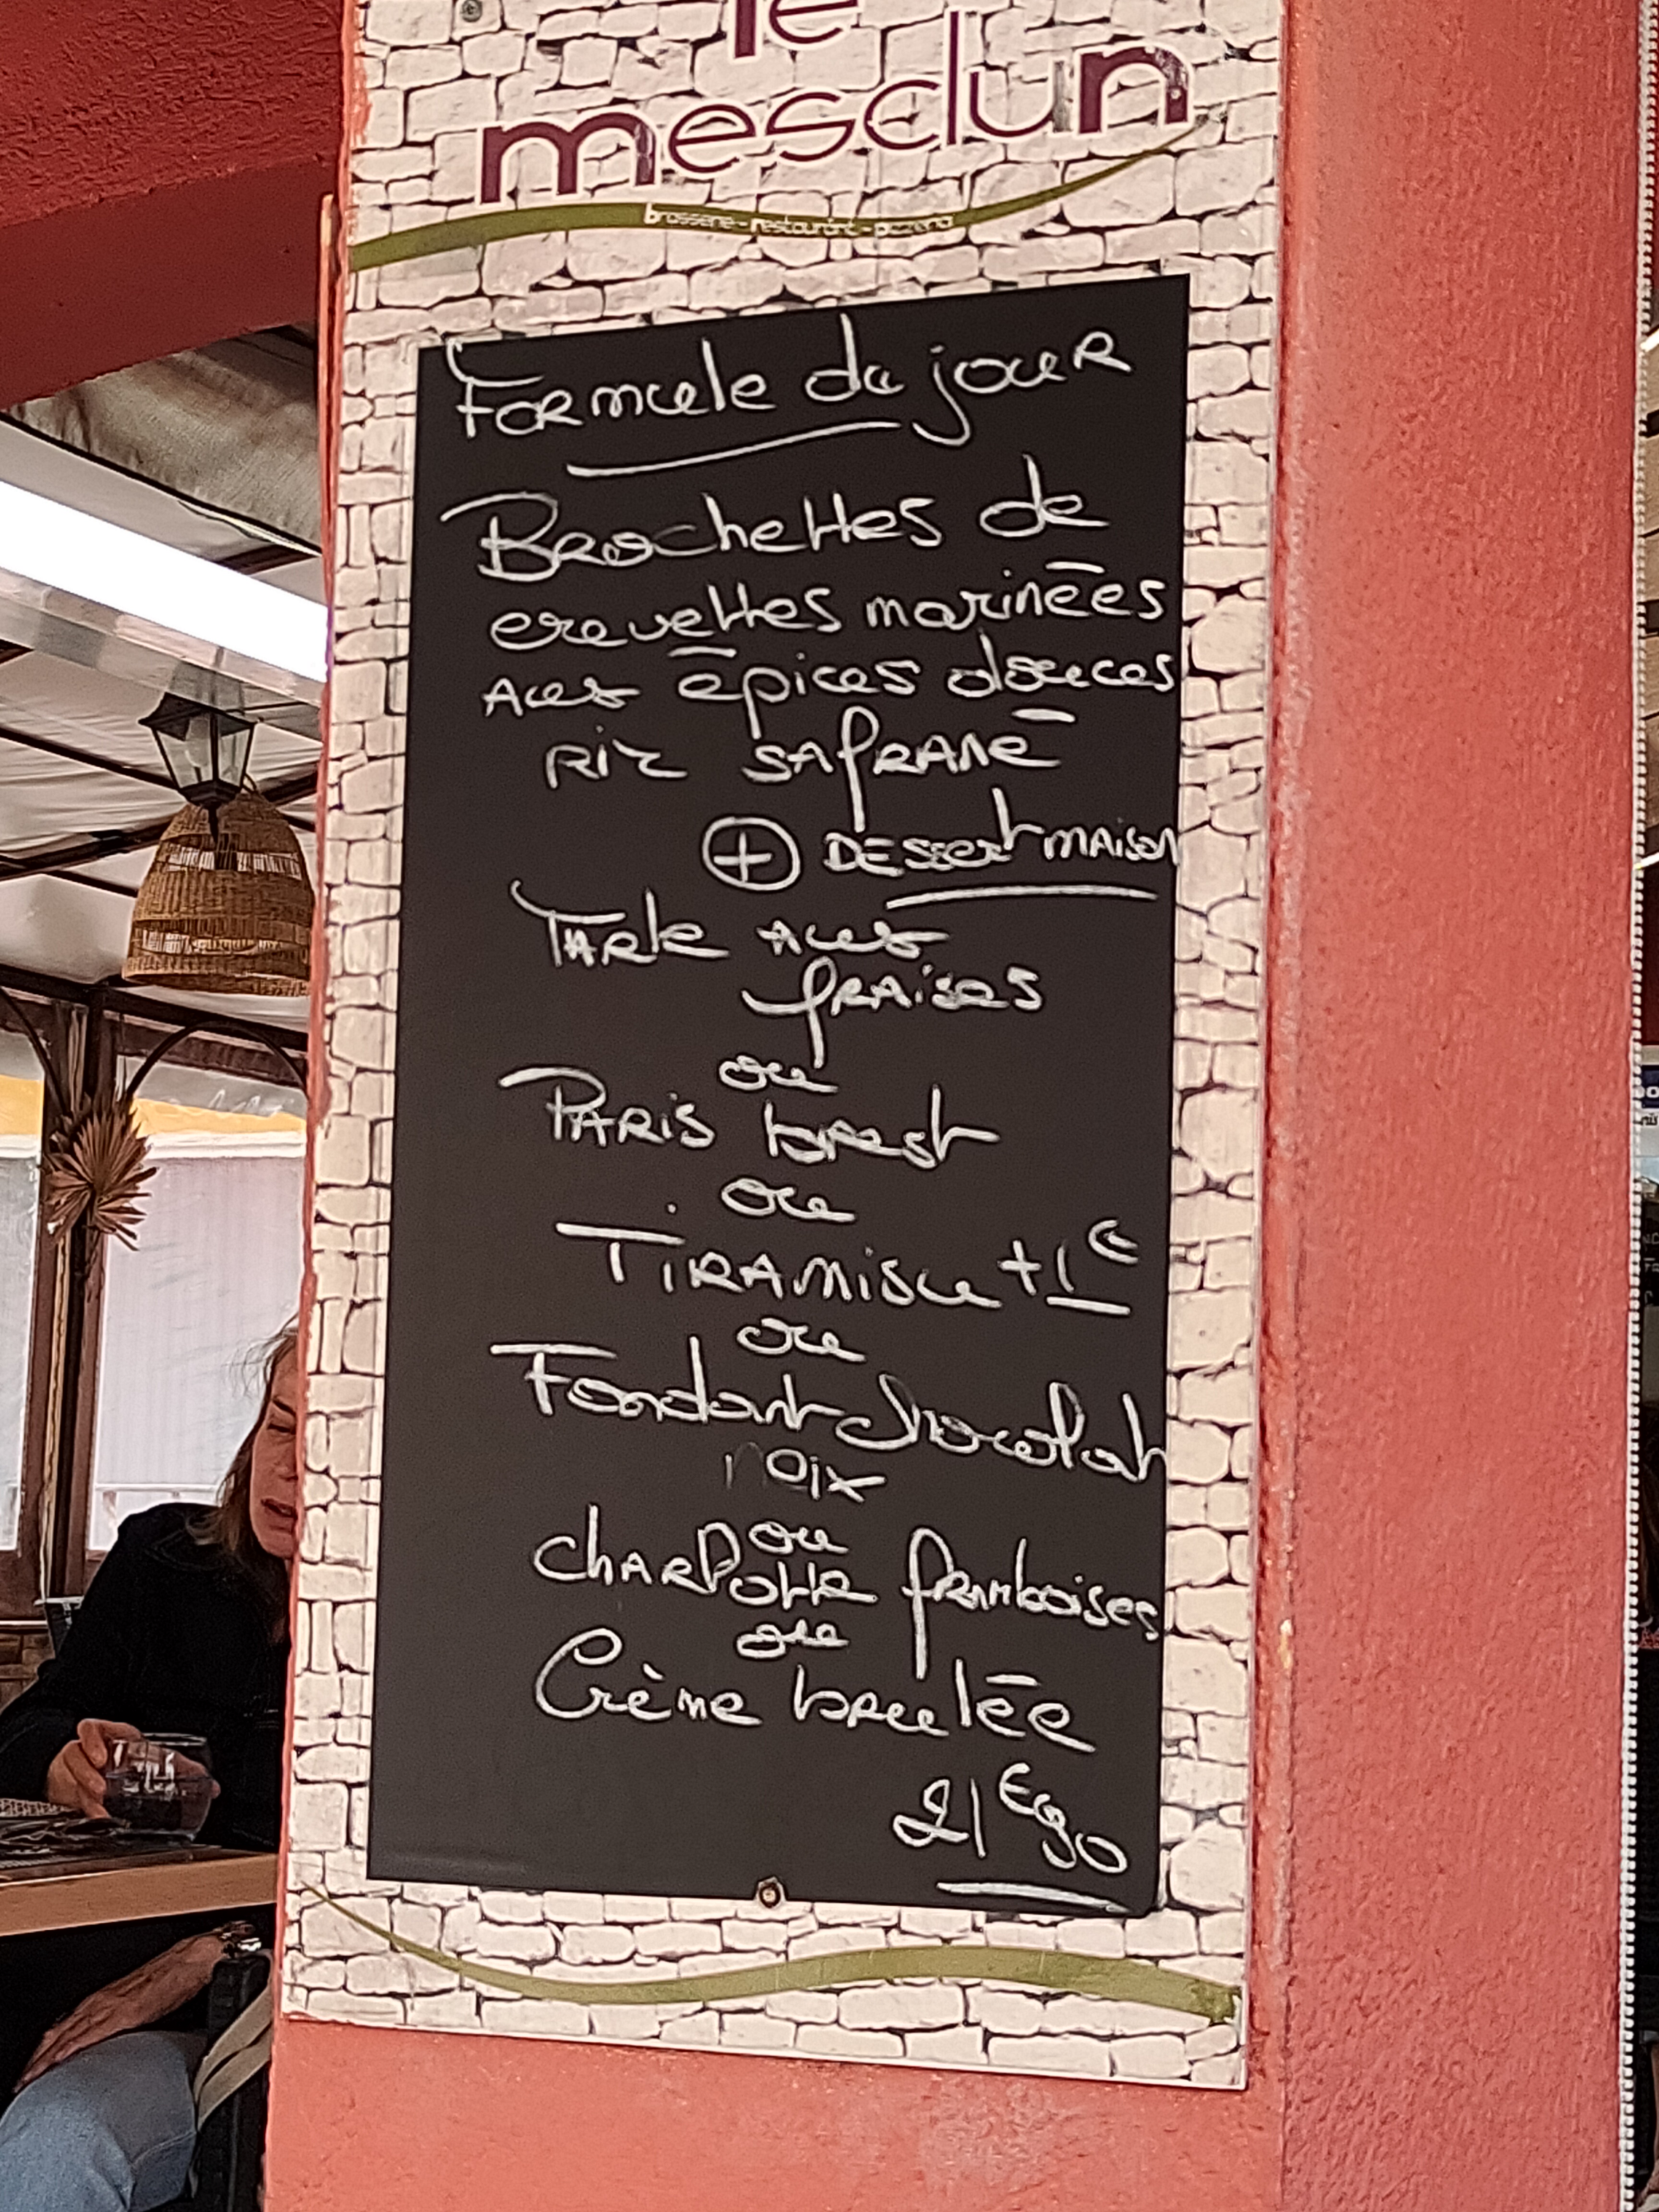 le
mesclun
brasserie - restaurant - pizzeria
Formule du jour
Brochettes de
crevettes marinées
aux épices douces
riz safrané
+ Dessert maison
Tarte aux
fraises
ou
Paris brest
ou
Tiramisu +1€
ou
Fondant chocolat
noix
ou
Charlotte framboises
ou
Crème brulée
21€90